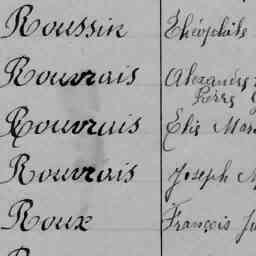 Roussin Théophile
Rouvrais Alexandre
Pierre
Rouvrais Elie Mar
Rouvrais Joseph M
Roux François Ju